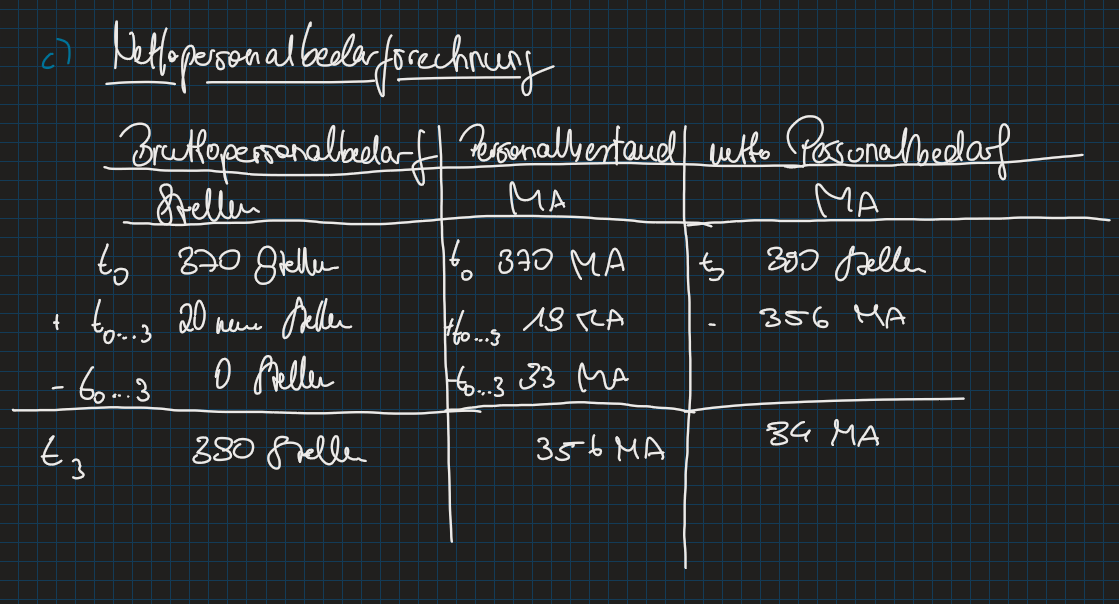 c) Nettopersonalbedarfsrechnung
Bruttopersonalbedarf Personalbestand netto Personalbedarf
Stellen MA MA
t0 370 Stellen t0 370 MA t3 390 Stellen
+ t0...3 20 neue Stellen +t0...3 19 MA - 356 MA
- t0...3 0 Stellen -t0...3 33 MA
t3 390 Stellen 356 MA 34 MA